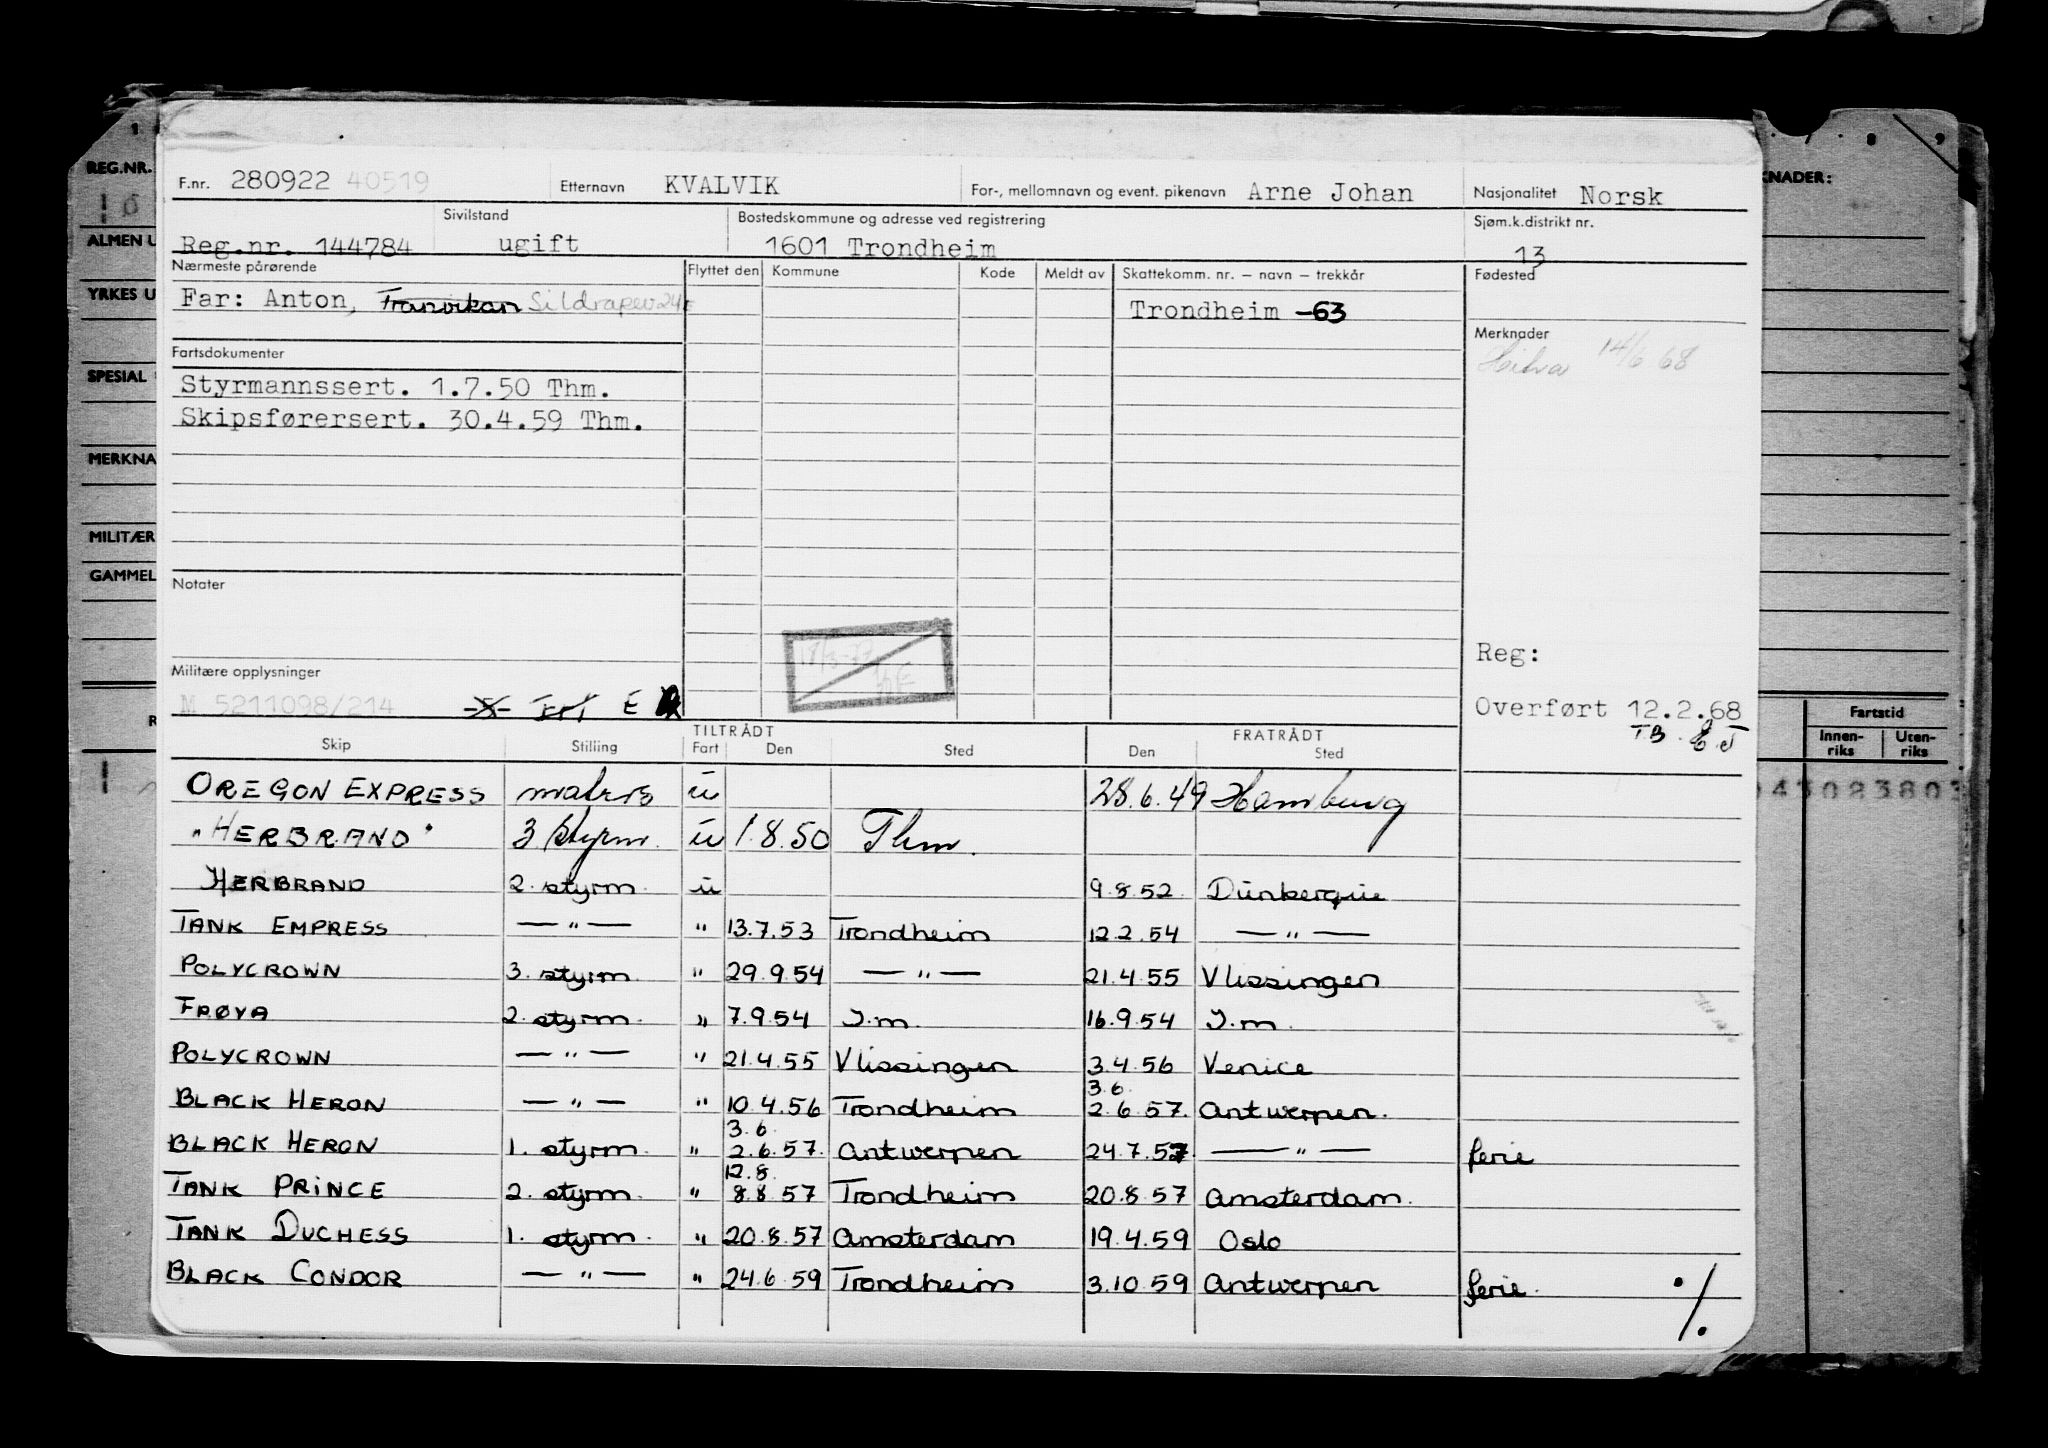 1 7 8 9
REG.NR. KNADER:
F.nr. 280922 40519 Etternavn KVALVIK For-, mellomnavn og event. pikenavn Arne Johan Nasjonalitet Norsk
Sivilstand Bostedskommune og adresse ved registrering Sjøm.k.distrikt nr.
ALMEN U
Reg.nr. 144784 ugift 1601 Trondheim 13
Nærmeste pårørende Flyttet den Kommune Kode Meldt av Skattekomm. nr. – navn – trekkår Fødested
YRKES U
Far: Anton, Tranvikan Sildrapev 24E Trondheim -63
Merknader
14/6 68
Fartsdokumenter
SPESIAL
Styrmannssert. 1.7.50 Thm.
Skipsførersert. 30.4.59 Thm.
MERKNA
MILITÆR
GAMMEL
Notater
18/3-77
Reg:
Militære opplysninger
M 5211098/214 E
Overført 12.2.68
TB.
TILTRÅDT FRATRÅDT
Skip Stilling Fart Den Sted Den Sted
Fartstid
Innen-riks Uten-riks
OREGON EXPRESS matros u 28.6.49 Hamburg
43083803
"HERBRAND" 3 styrm. u 1.8.50 Thm.
HERBRAND 2. styrm. u 9.8.52. Dunkerque
TANK EMPRESS — " — " 13.7.53 Trondheim 12.2.54 — " —
POLYCROWN 3. styrm. " 29.9.54 — " — 21.4.55 Vlissingen
FRØYA 2. styrm. " 7.9.54 I.m. 16.9.54 I.m.
POLYCROWN — " — " 21.4.55 Vlissingen 3.4.56 Venice
3.6.
BLACK HERON — " — " 10.4.56 Trondheim 2.6.57. Antwerpen.
3.6.
BLACK HERON 1. styrm. " 2.6.57. Antwerpen 24.7.57. — " — ferie
12.8.
TANK PRINCE 2. styrm. " 8.8.57 Trondheim 20.8.57 Amsterdam.
TANK DUCHESS 1. styrm. " 20.8.57 Amsterdam 19.4.59 Oslo
BLACK CONDOR — " — " 24.6.59 Trondheim 3.10.59 Antwerpen ferie. ./.